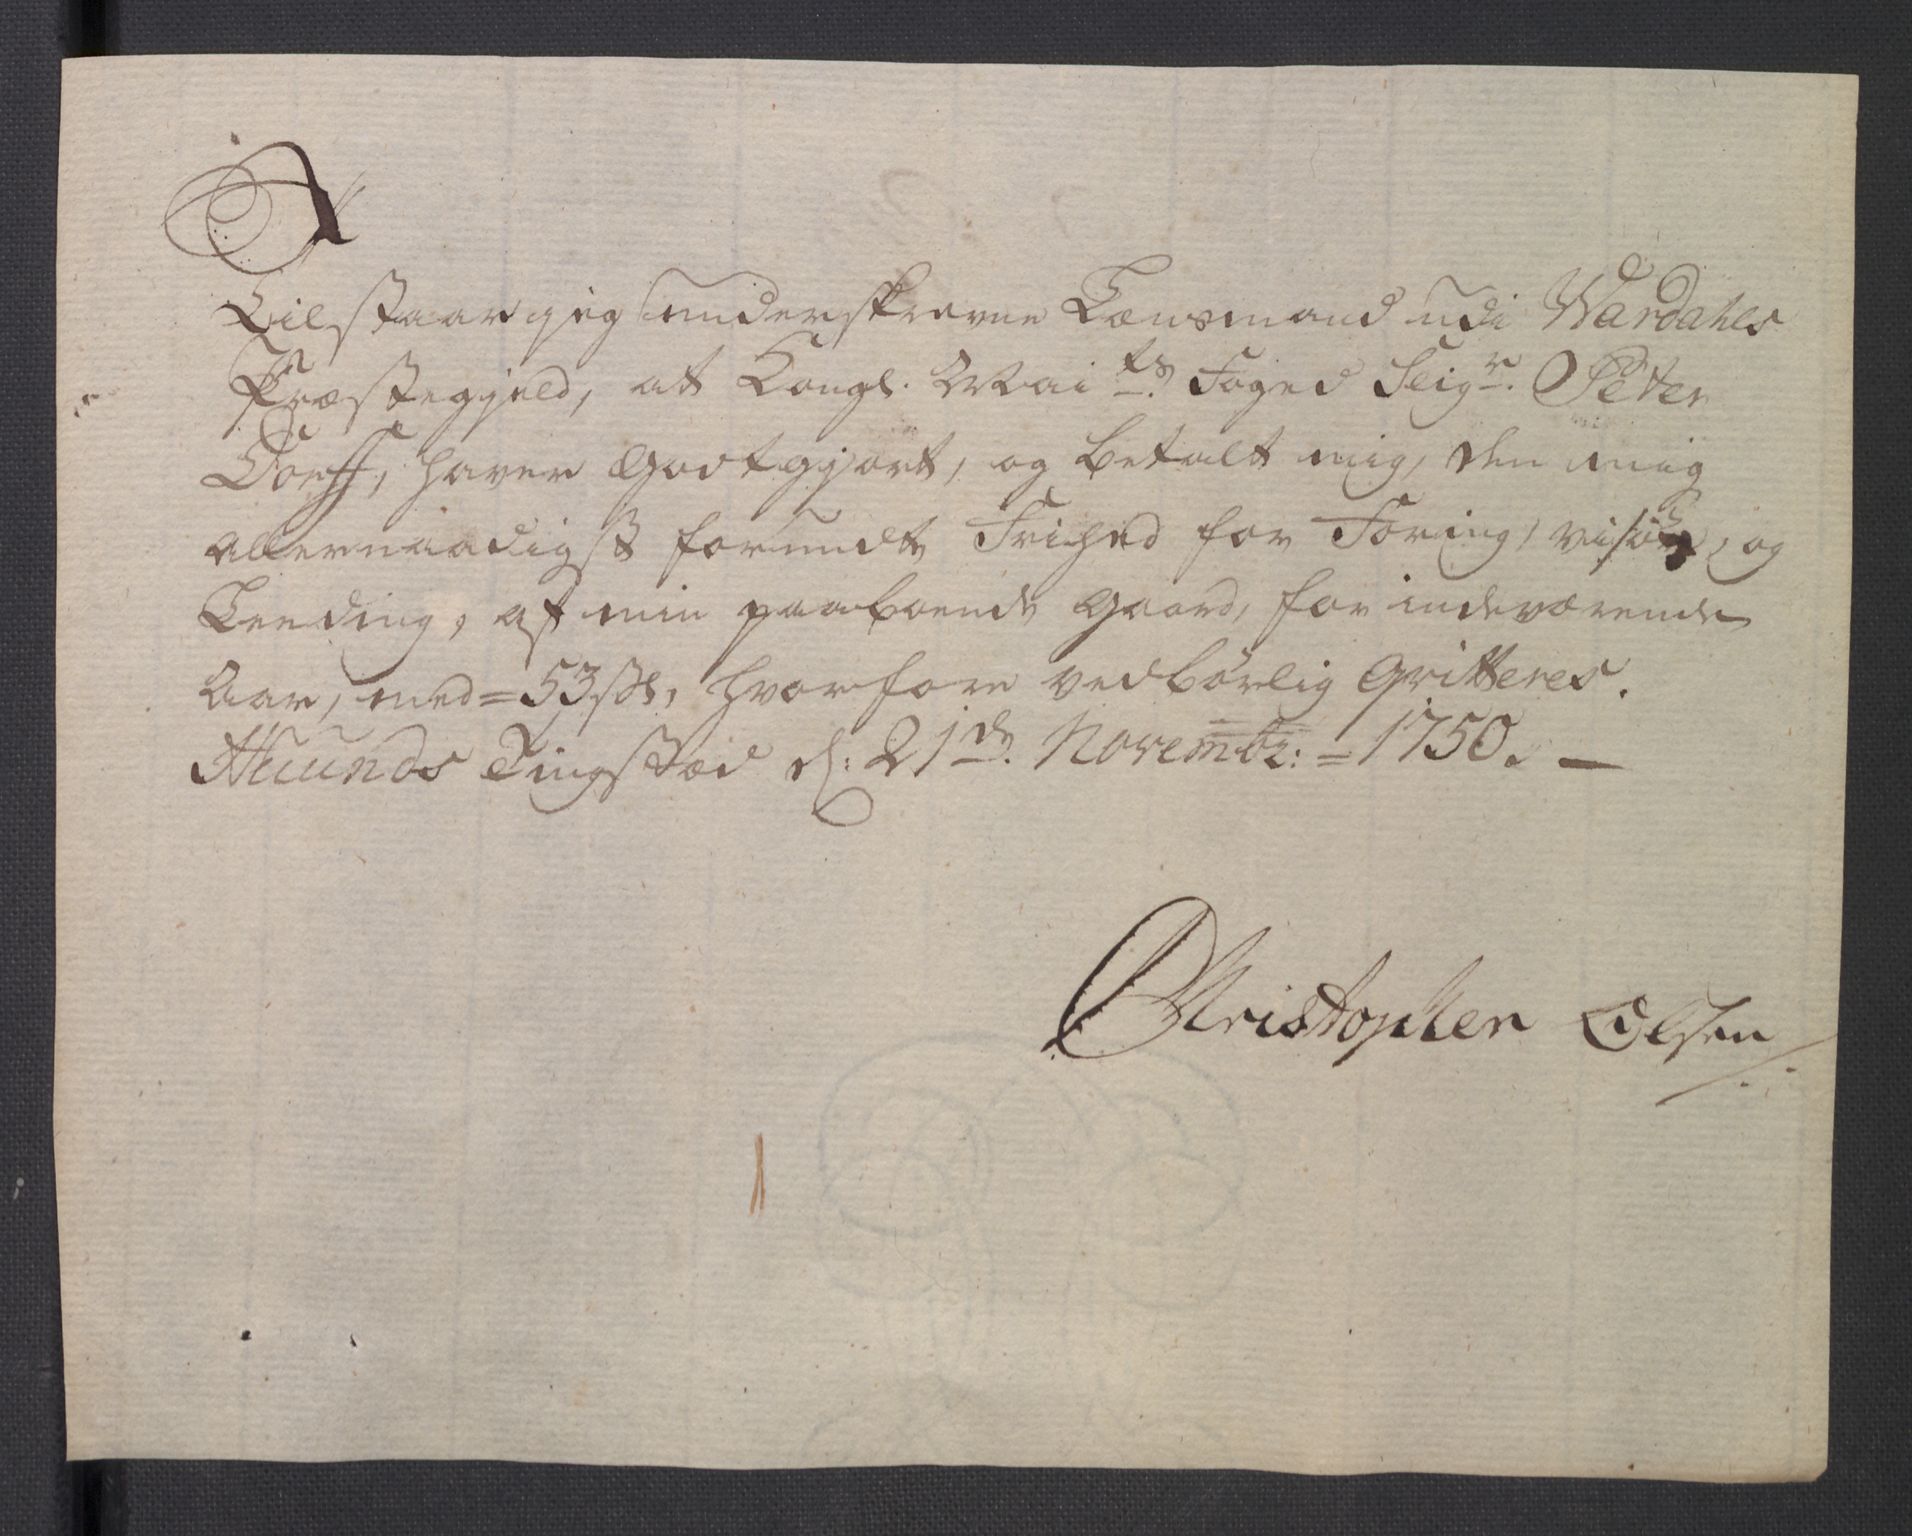 Tilstaar jeg underskrevne Lensmand udi Wardahls
Præstegjeld, at Kongl. Mai ts. Foged Seigr. Peter
Dorff, haver Godtgjort, og betalt mig, den mig
allernaadigst forundte Frihed for Foring, og
Leeding, af min paaboende gaard, for indeværende
Aar, med = 53 sk, hvorfore vedbørlig Qvitteres.
Auunds Tingstæd d: 21de. Novembr: = 1750. —
Christopher Olsen